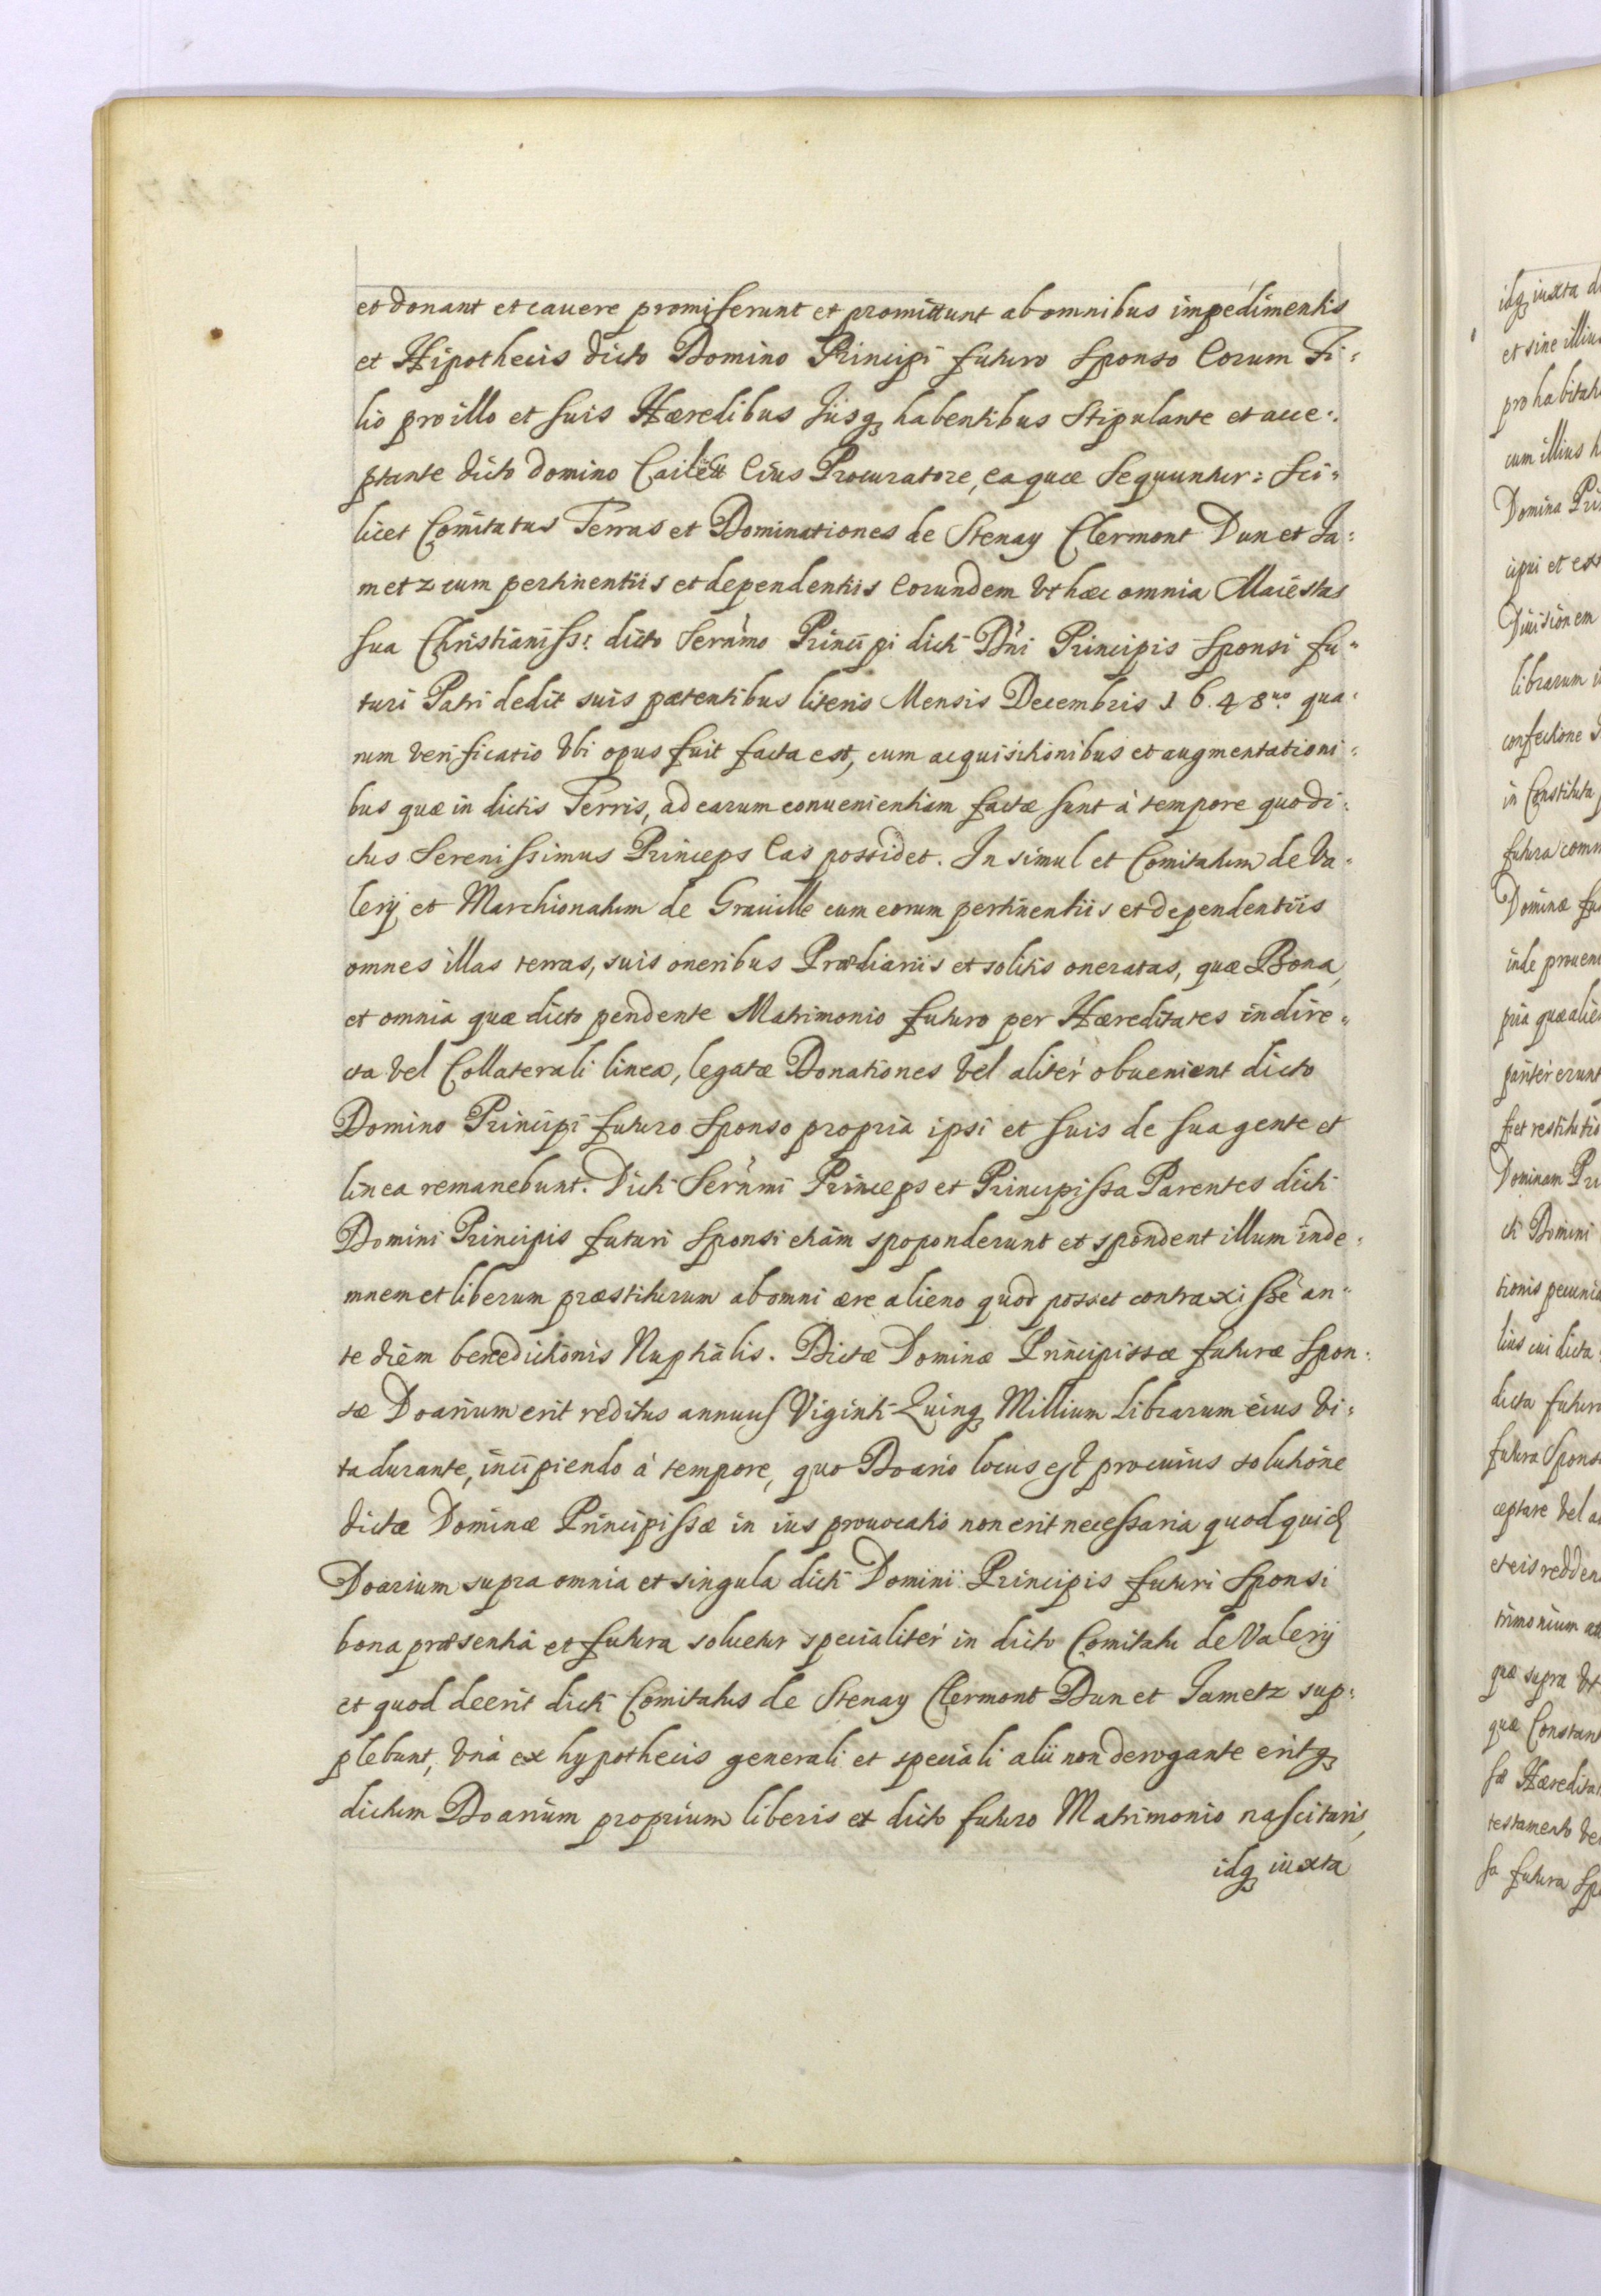 et donant et cauere promiserunt et promittunt ab omnibus impedimentis
et Hipothecis dicto Domino Principi futuro Sponso Eorum Fi:
lio pro illo et suis Hæredibus Iusq; habentibus Stipulante et acce:
ptante dicto domino Cailett Eius Procuratore, ea quæ Sequuntur: Sci:
licet Comitatus Terras et Dominationes de Stenay Clermont Dun et Ja:
metz cum pertinentiis et dependentiis Eorundem Vt hæc omnia Maiestas
sua Christianiss: dicto Sernmo Principi dicti Dni Principis Sponsi fu:
turi Patri dedit suis patentibus literis Mensis Decembris 1648uo. qua:
rum verificatio Vbi opus fuit facta est, cum acquisitionibus et augmentationi:
bus quæ in dictis Terris, ad earum conuenientiam factæ sunt à tempore quo di:
ctus Serenissimus Princeps Eas possidet. In simul et Comitatum de Va:
lerÿ et Marchionatum de Grauille cum eorum pertinentiis et dependentiis
omnes illas terras, suis oneribus Prædiariis et solitis oneratas, quæ Bona,
et omnia quæ dicto pendente Matrimonio futuro per Hæreditates in dire:
cta vel Collaterali linea, legatæ Donationes Vel aliter obuenient dicto
Domino Principi futuro Sponso propria ipsi et suis de sua gente et
linea remanebunt. Dicti Sernmi Princeps et Principissa Parentes dicti
Domini Principis futuri Sponsi etiam spoponderunt et spondent illum inde:
mnem et liberum præstiturum ab omni ære alieno quod posset contraxisse an:
te diem benedictionis Nuptialis. Dictæ Dominæ Principissæ futuræ Spon:
sæ Doarium erit reditus annuus Viginti Quinq; Millium Librarum eius Vi:
ta durante, incipiendo à tempore, quo Doario locus est pro cuius solutione
dictæ Dominæ Principissæ in ius prouocatio non erit necessaria quod quid
Doarium supra omnia et singula dicti Domini Principis futuri Sponsi
bona præsentia et futura soluetur specialiter in dicto Comitatu de Valerÿ
et quod deerit dicti Comitatus de Stenay Clermont Dun et Jametz sup:
plebunt, Vnà ex hypothecis generali et speciali alii non derogante eritq;
dictum Doarium proprium liberis ex dicto futuro Matrimonio nascituris,
idq; iuxta
idq; iuxta
et sine illius
cum illius
Domina
cipi et
Diuisionem
librarum
confectione
in Constituta
futura
Dominæ
inde
pria quæ
pariter erunt
fiet restitutio
Dominam
cti Domini
tionis pecunia
lius cui dicta
dicta
futura
ceptare Vel
et eis
trimonium
quæ supra Vt
quæ
testamento
sa futura